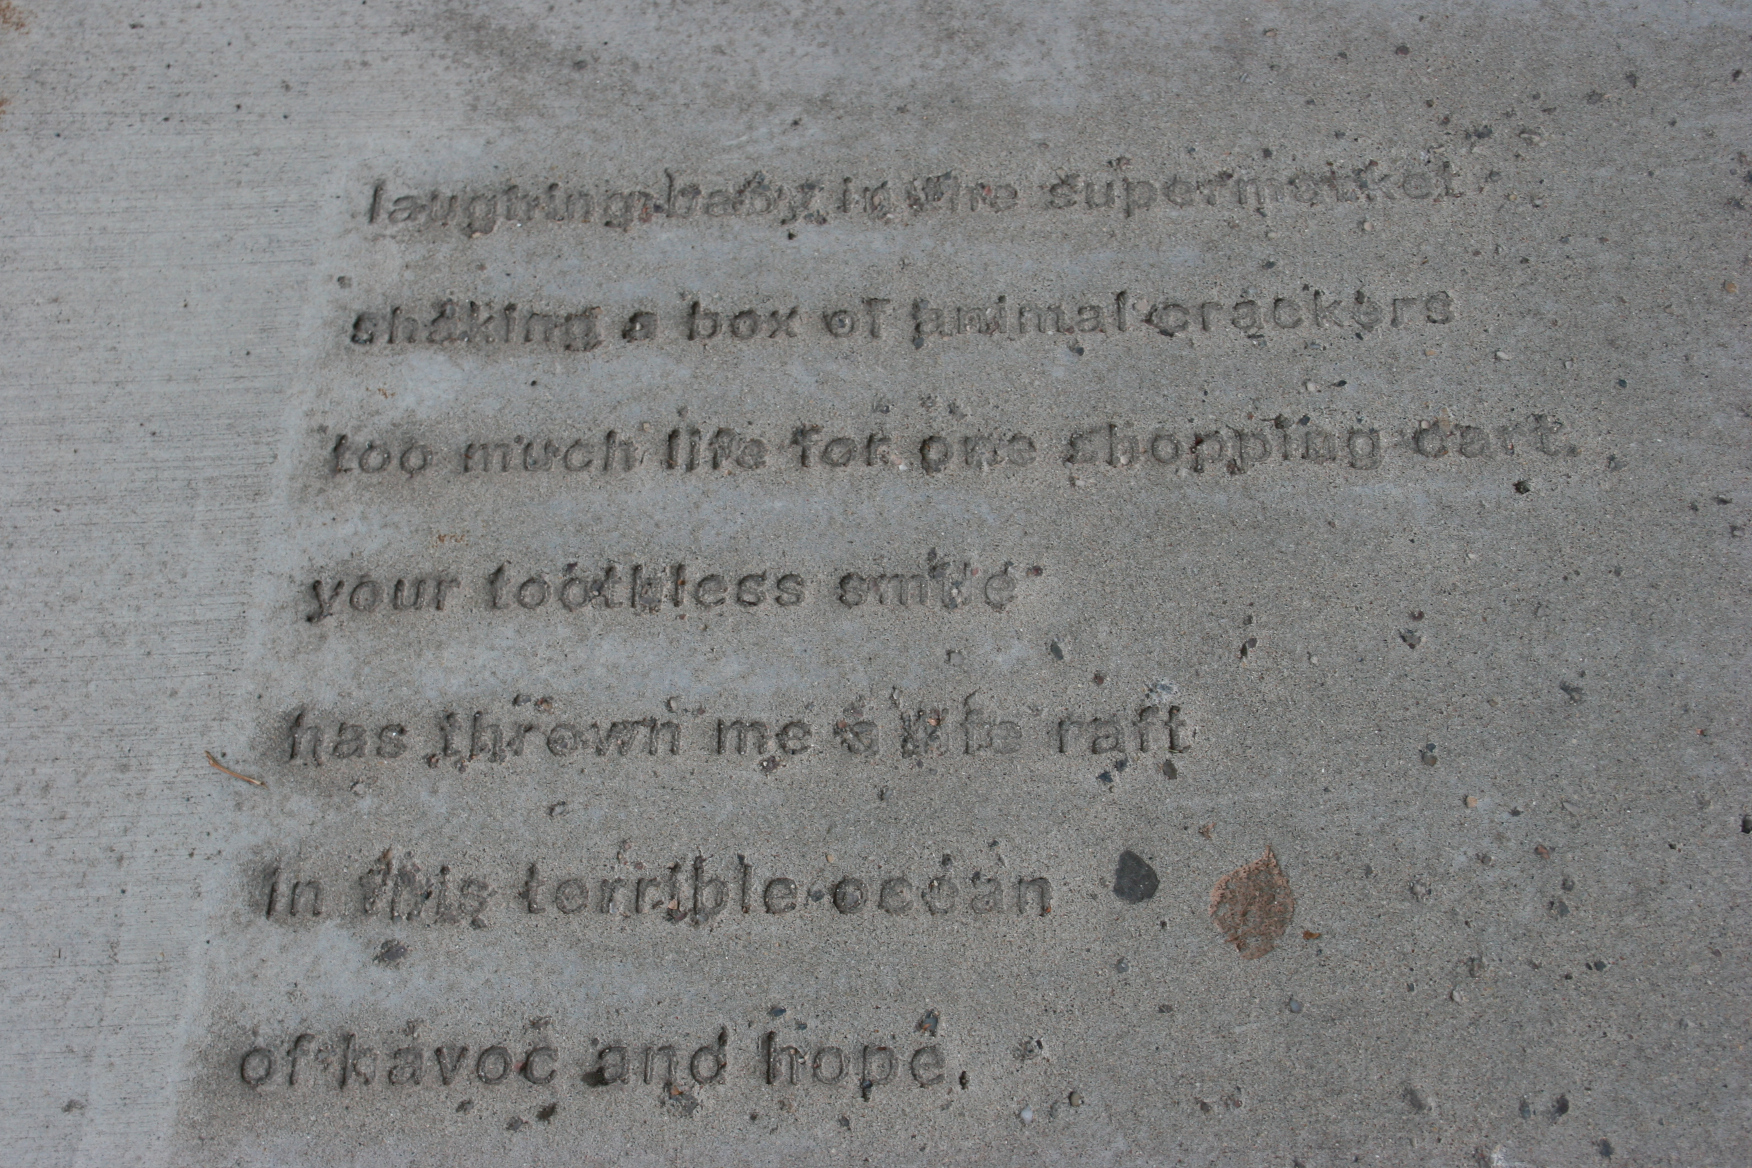 laughing baby in the supermarket
shaking a box of animal crackers
too much life for one shopping cart.
your toothless smile
has thrown me a life raft
in this terrible ocean
of havoc and hope.